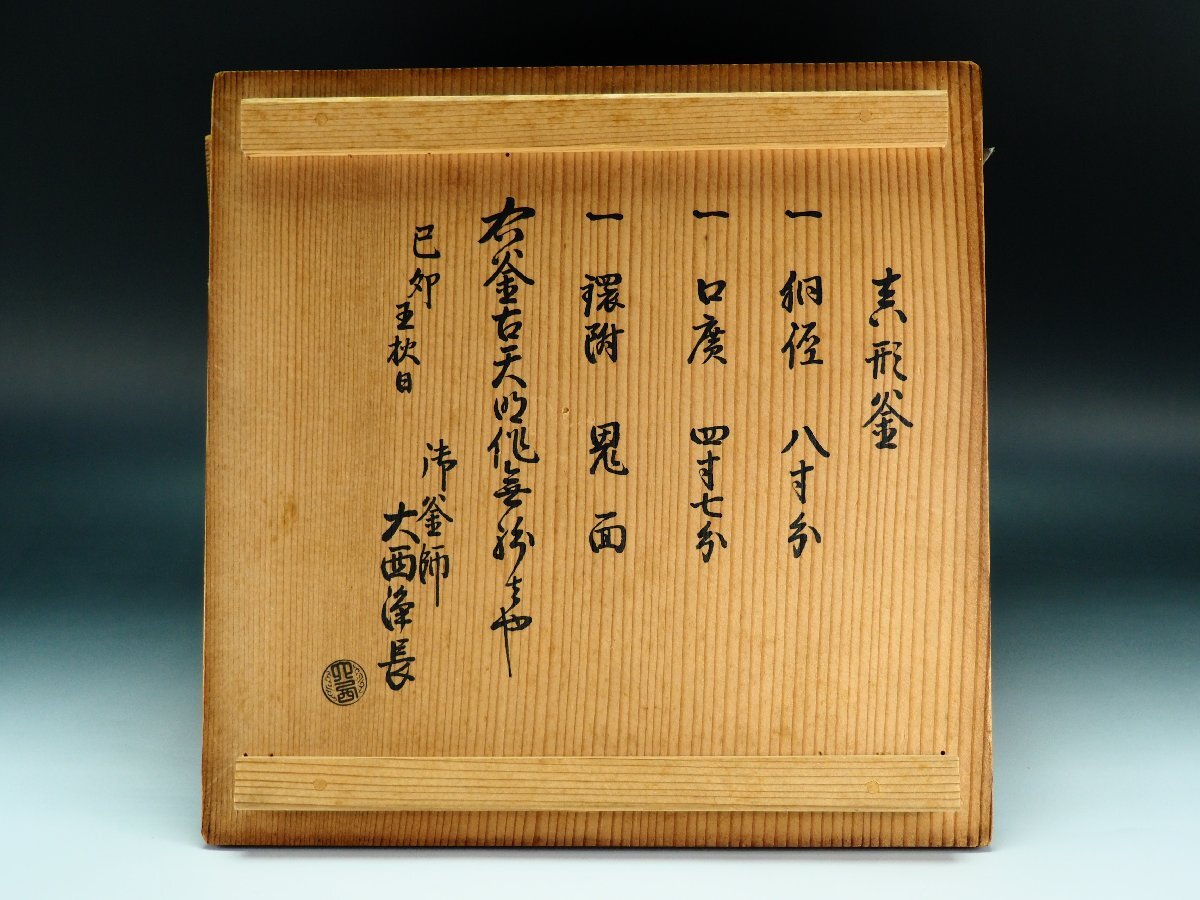 真形釜
一 胴径 八寸分
一 口廣 四寸七分
一 環附 鬼面
右釜古天明作無紛者也
己卯 王秋日
御釜師
大西浄長
大西